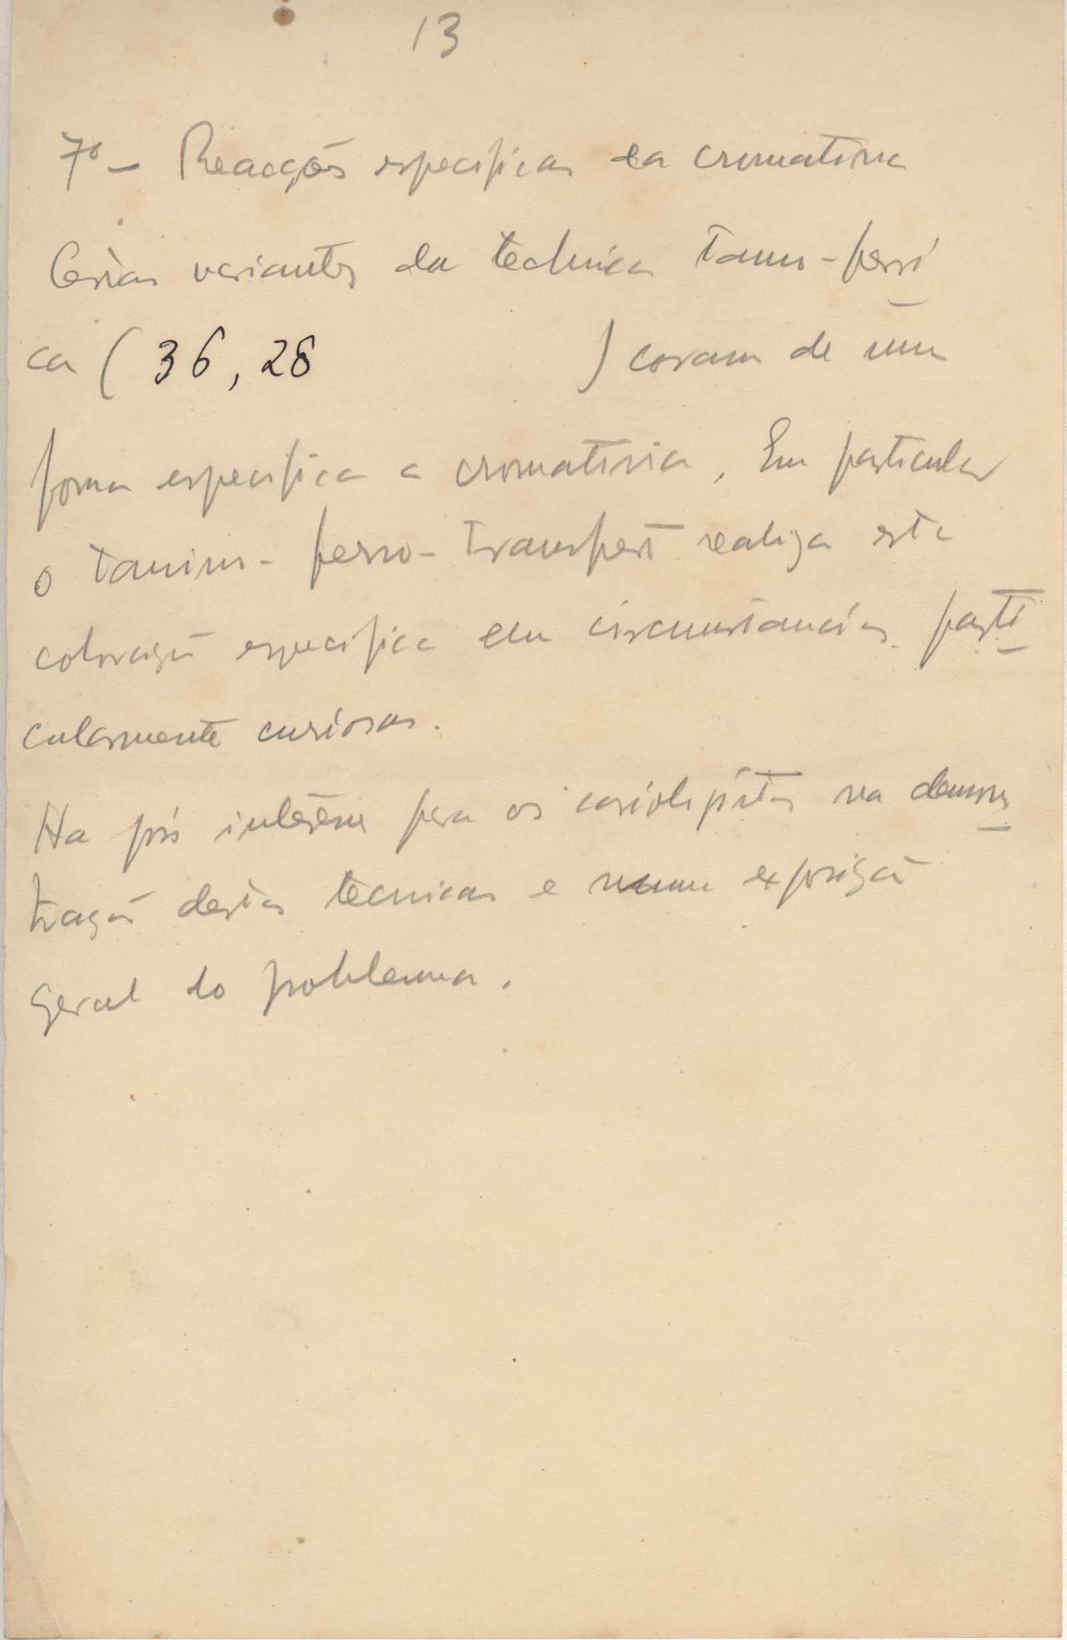 13
7º - Reacções especificas da cromatina
Certas variantes da technica Tano-ferri
ca (36, 28 ) coram de uma
forma especifica a cromatina. Em particular
o Tanino-ferro-Transfert realiza esta
coloração especifica em circunstancias parti
cularmente curiosas.
Ha pois interesse para os cariologistas na demons
tração destas tecnicas e numa exposição
geral do problema.